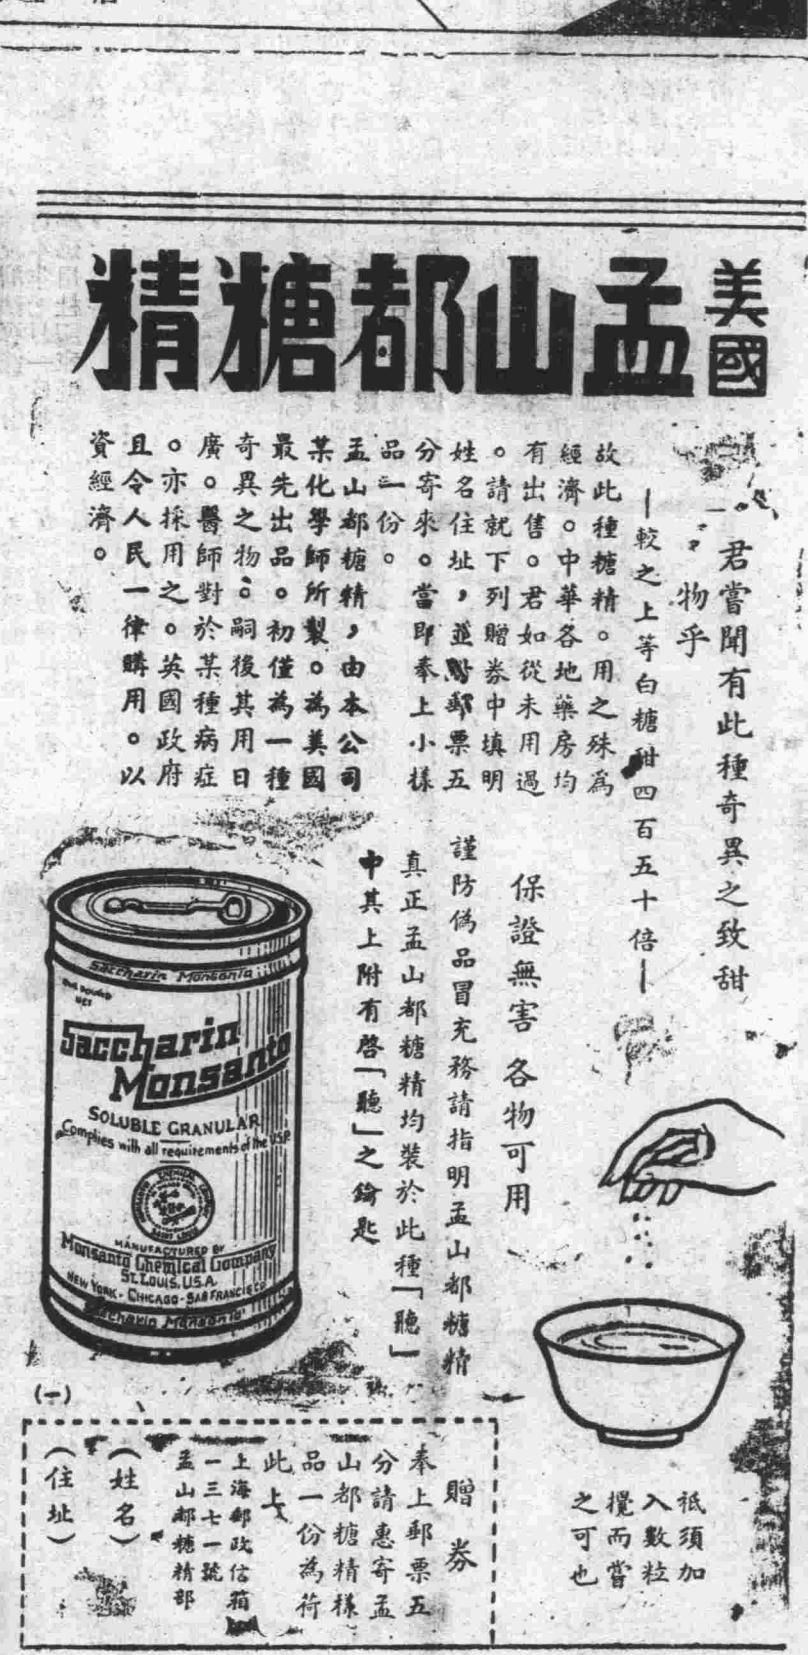 美國
孟山都糖精
君嘗聞有此種奇異之致甜
物乎
—較之上等白糖甜四百五十倍—
故此種糖精。用之殊為
經濟。中華各地藥房均
有出售。君如從未用過
。請就下列贈券中填明
姓名住址，並附郵票五
分寄來。當即奉上小樣
品一份。
孟山都糖精，由本公司
某化學師所製。為美國
最先出品。初僅為一種
奇異之物。嗣後其用日
廣。醫師對於某種病症
。亦採用之。英國政府
且令人民一律購用。以
資經濟。
保證無害 各物可用
謹防偽品冒充務請指明孟山都糖精
真正孟山都糖精均裝於此種「聽」
中其上附有啓「聽」之鑰匙
Saccharin Monsanto
ONE POUND
NET
Saccharin
Monsanto
SOLUBLE GRANULAR
Complies with all requirements of the U.S.P.
MANUFACTURED BY
Monsanto Chemical Company
ST. LOUIS, U.S.A.
NEW YORK · CHICAGO · SAN FRANCISCO
Saccharin Monsanto
祇須加
入數粒
攪而嘗
之可也
(一)
贈券
奉上郵票五
分請惠寄孟
山都糖精樣
品一份為荷
此上
上海郵政信箱
一三七一號
孟山都糖精部
（姓名）
（住址）